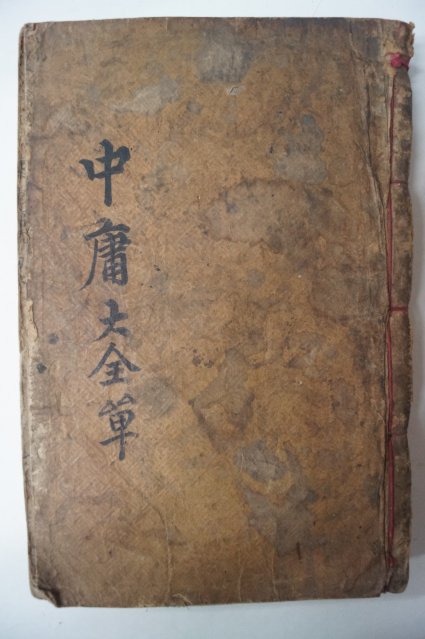 中庸大全單